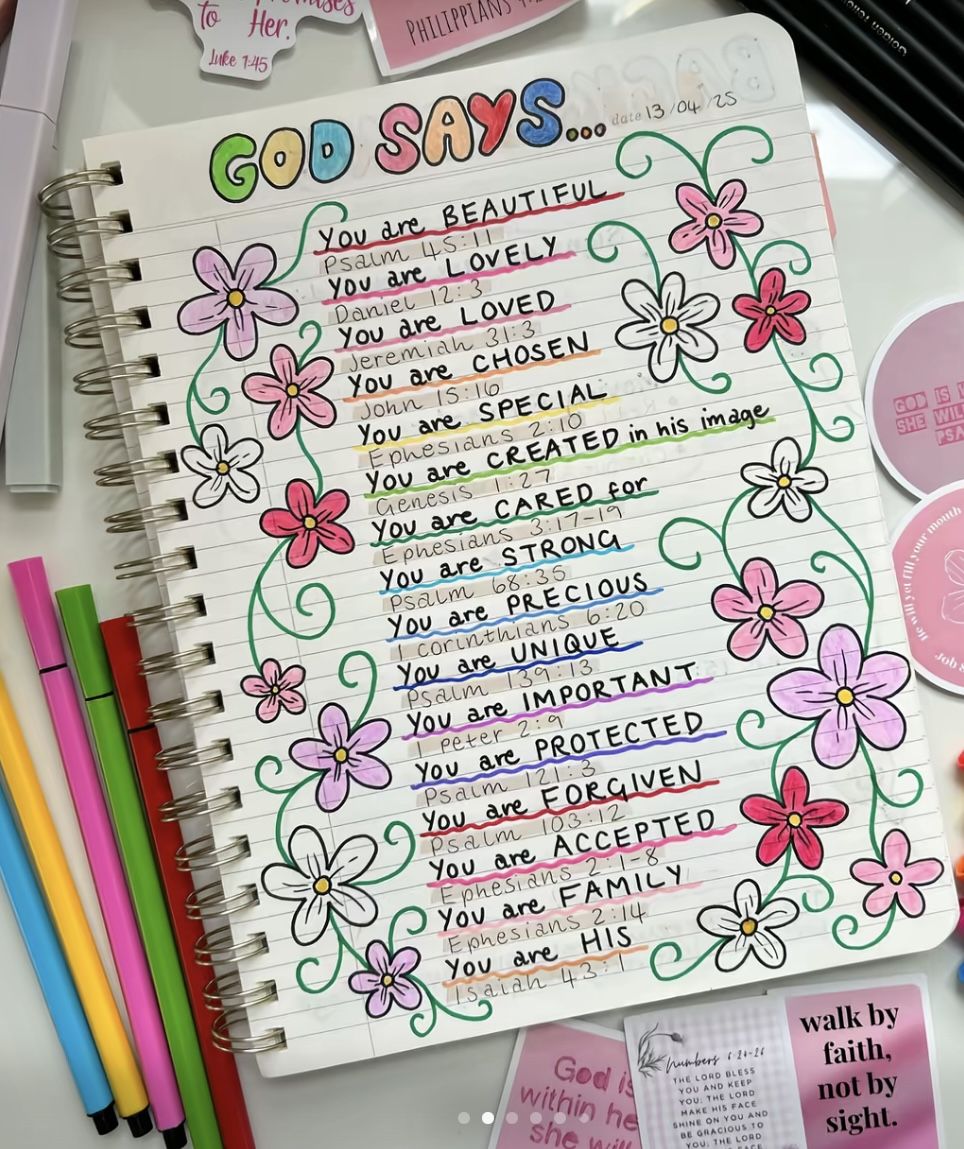 to Her.
Luke 1:45
PHILIPPIANS
GOD SAYS...
date 13/04/25
You are BEAUTIFUL
Psalm 45:11
You are LOVELY
Daniel 12:3
You are LOVED
Jeremiah 31:3
You are CHOSEN
John 15:16
You are SPECIAL
Ephesians 2:10
You are CREATED in his image
Genesis 1:27
You are CARED for
Ephesians 3:17-19
You are STRONG
Psalm 68:35
You are PRECIOUS
1 corinthians 6:20
You are UNIQUE
Psalm 139:13
You are IMPORTANT
1 Peter 2:9
You are PROTECTED
Psalm 121:3
You are FORGIVEN
Psalm 103:12
You are ACCEPTED
Ephesians 2:1-8
You are FAMILY
Ephesians 2:14
You are HIS
Isaiah 43:1
GOD IS
SHE WILL
He will yet fill your mouth
Job
God is
within he
she will
Numbers 6:24-26
THE LORD BLESS
YOU AND KEEP
YOU; THE LORD
MAKE HIS FACE
SHINE ON YOU AND
BE GRACIOUS TO
YOU; THE LORD
walk by
faith,
not by
sight.